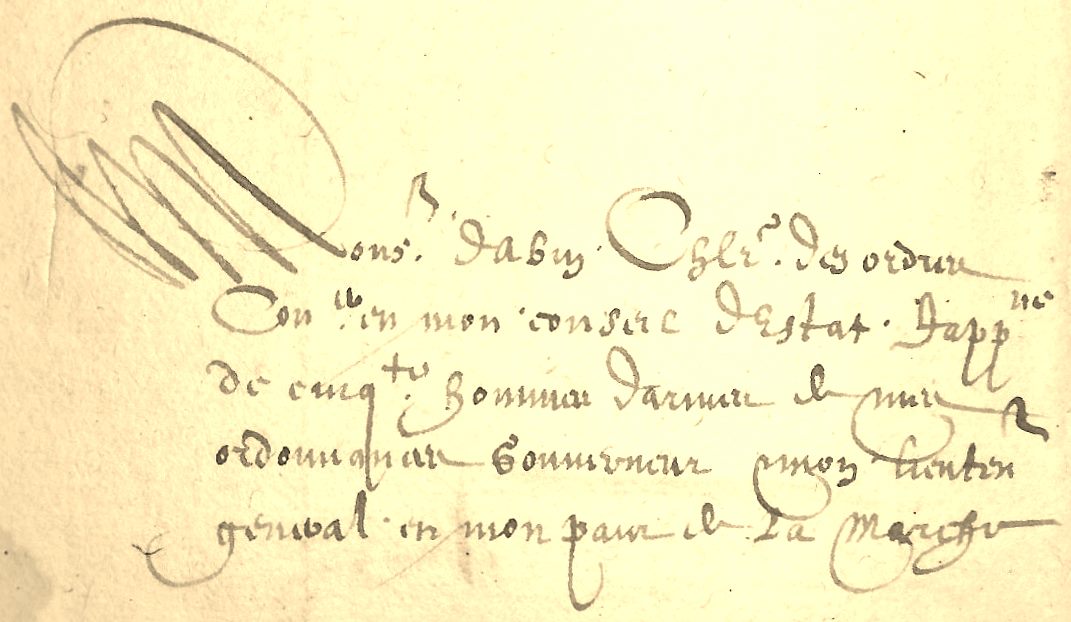 Monsr. dabin Chlr. des ordres
Conler en mon conseil dEstat Cappne
de cinqte hommes darmes de mes
ordonnances Gouverneur mon lieuten
general en mon pais de La Marche